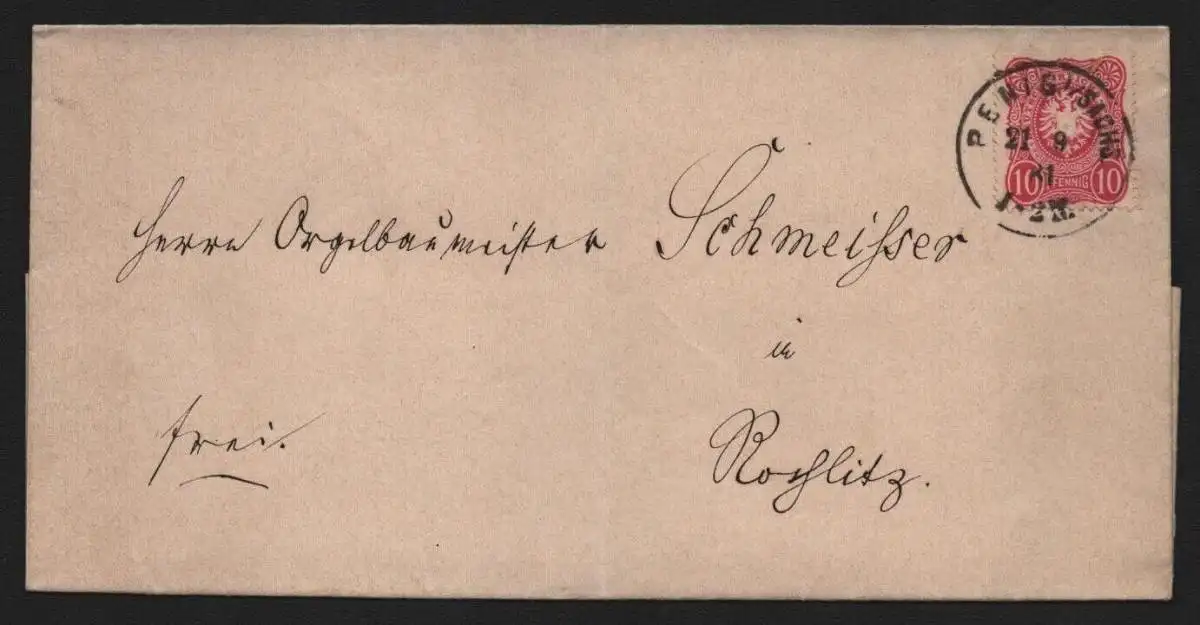 PENIG i/SACHS
21 9
81
1-2N.
10 PFENNIG 10
Herrn Orgelbaumeister Schmeisser
in
frei.
Rochlitz.